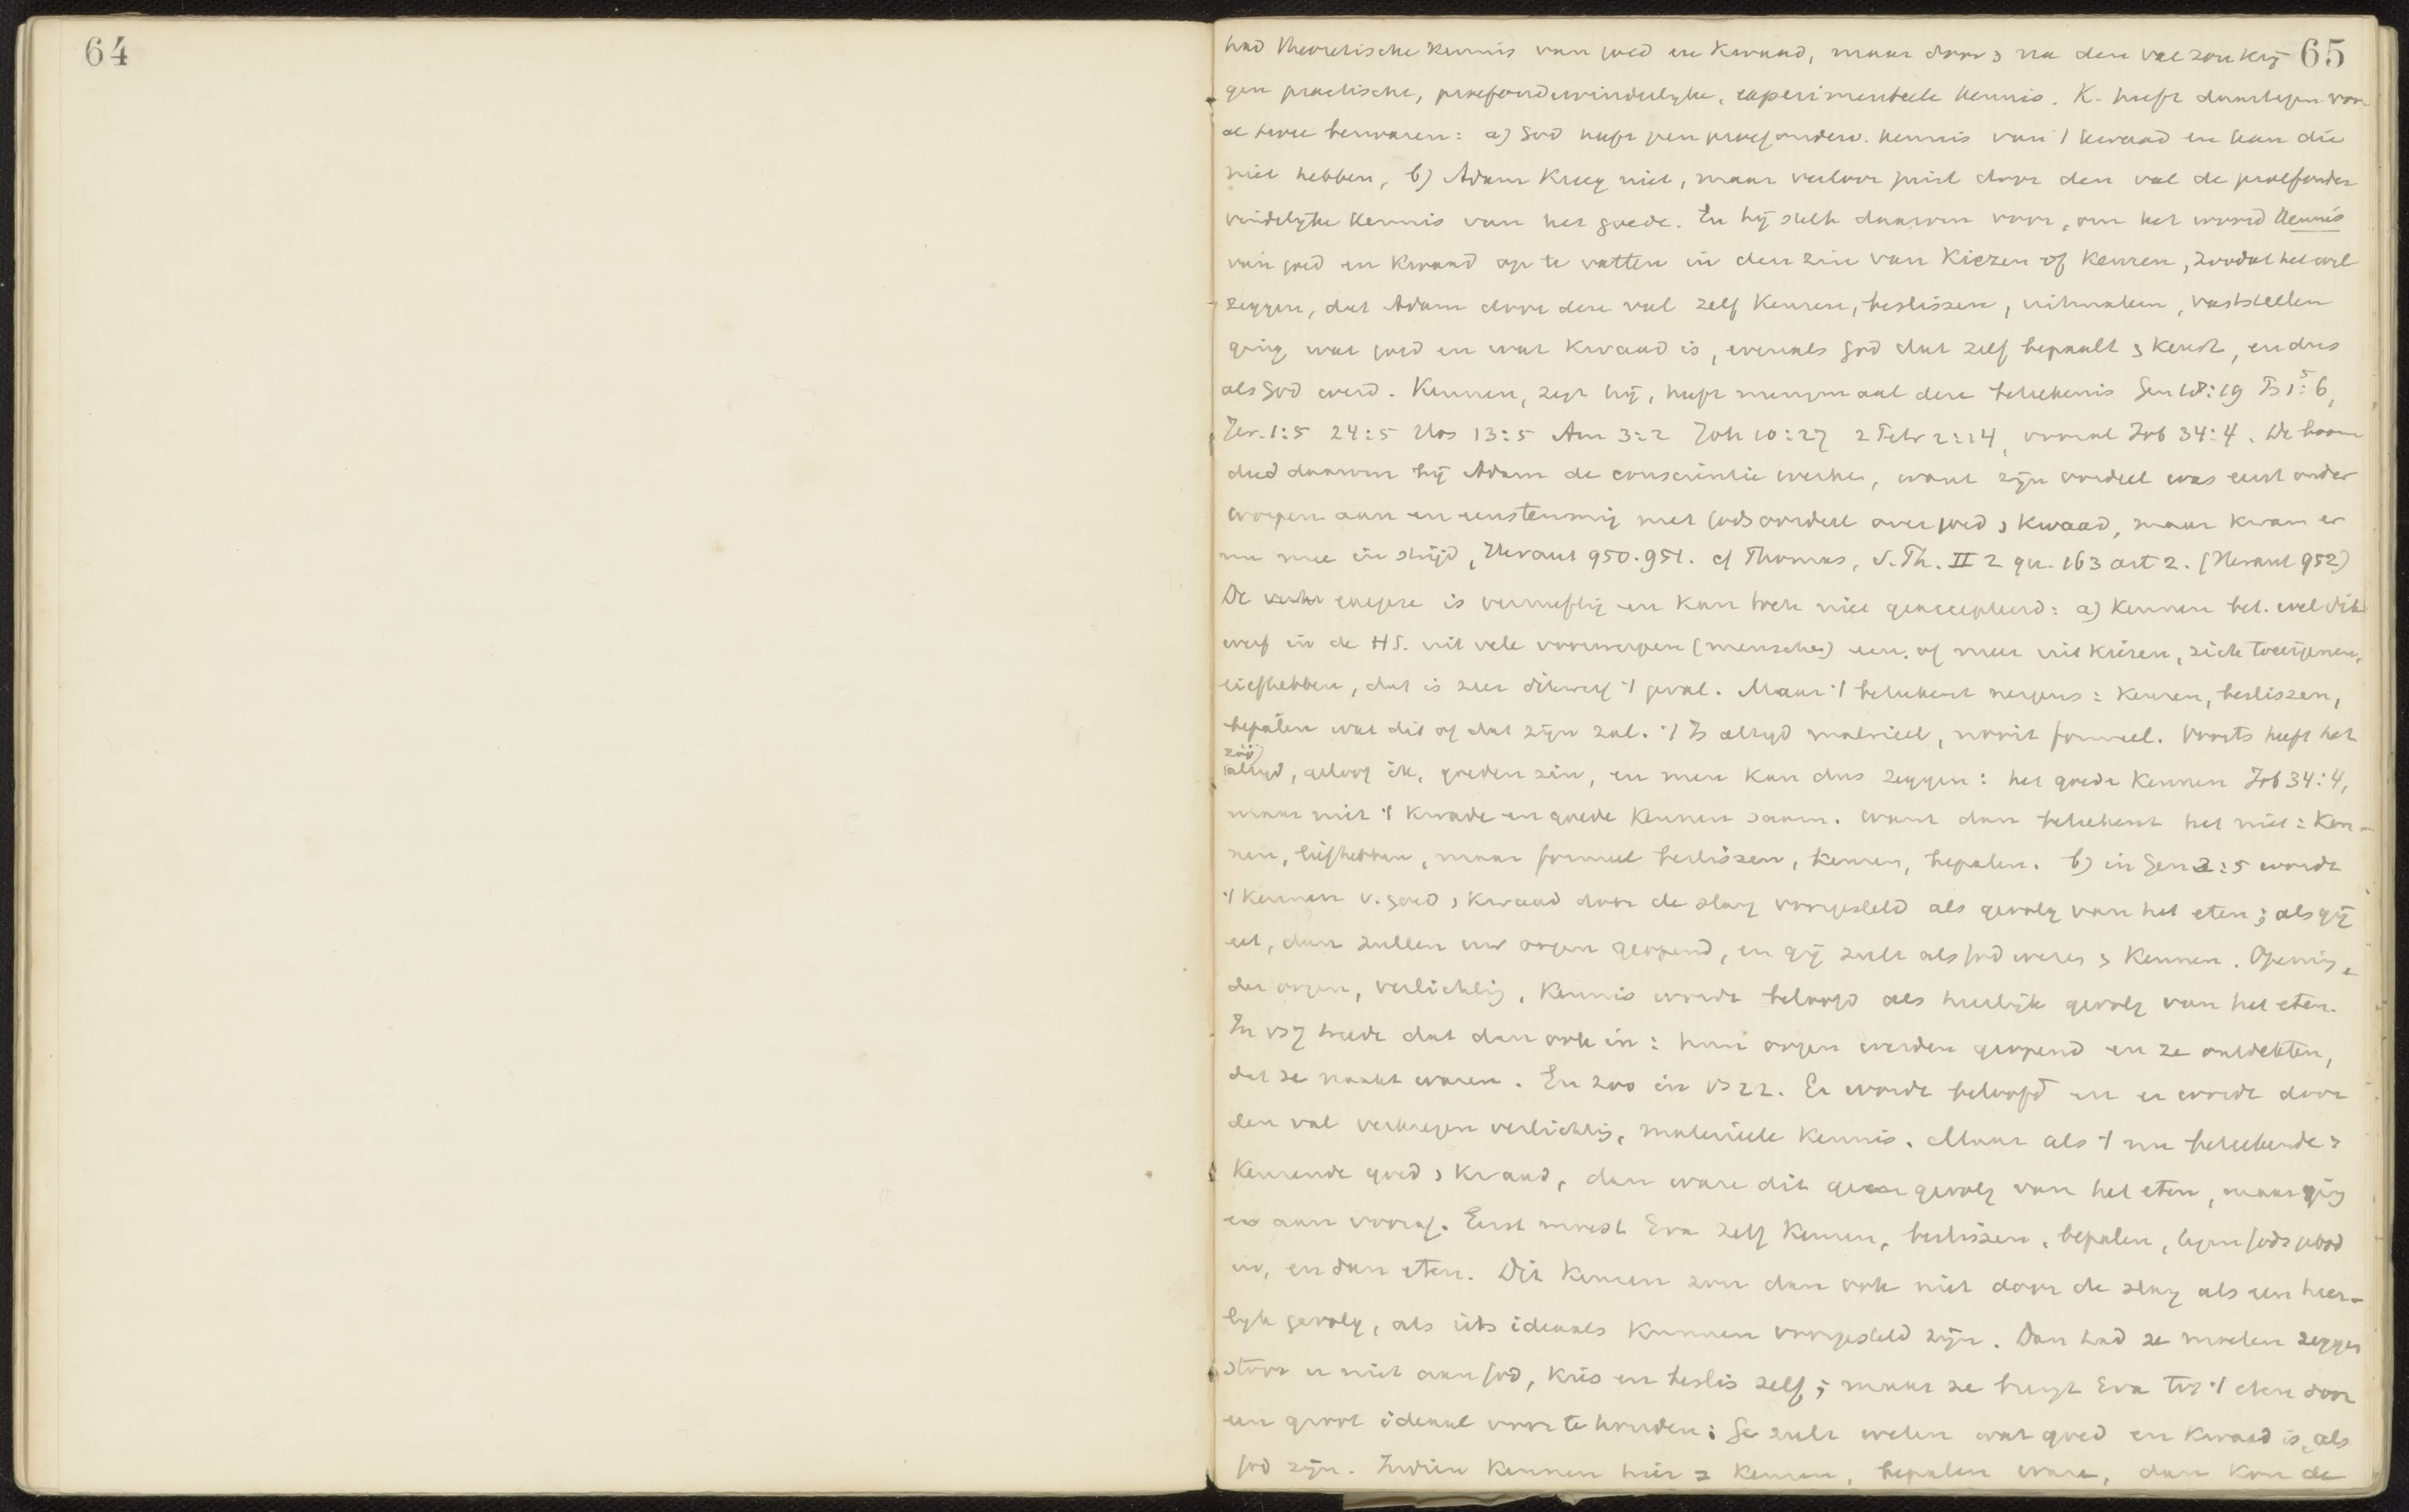 64
65
had theoretische kennis van goed en kwaad, maar door & na den val zou krij-
gen practische, proefondervindelijke, experimenteele kennis. K. heeft daartegen voor-
al twee bezwaren: a) God heeft geen proefonderv. kennis van 't kwaad en kan die
niet hebben, b) Adam kreeg niet, maar verloor juist door den val de proefonder
vindelijke kennis van het goede. En hij stelt daarom voor, om het woord kennis
van goed en kwaad op te vatten in den zin van kiezen of keuren, zoodat het wil
zeggen, dat Adam door den val zelf keuren, beslissen, uitmaken, vaststellen
ging wat goed en wat kwaad is, evenals God dat zelf bepaalt & keurt, en dus
als God werd. Kennen, zegt hij, heeft menigmaal deze beteekenis Gen 18:19 Ps 1:6,
Jer. 1:5 24:5 Hos 13:5 Am 3:2 Joh 10:27 2 Petr 2:14, vooral Job 34:4. De boom
deed daarom bij Adam de conscientie werken, want zijn oordeel was eerst onder
worpen aan en eenstemmig met Gods oordeel over goed & kwaad, maar kwam er
nu mee in strijd, Heraut 950.951. cf Thomas, S.Th. II 2 qu. 163 art 2. (Heraut 952)
De exegese is vernuftig en kan toch niet geaccepteerd: a) kennen bet. wel dik
werf in de HS. uit vele voorwerpen (menschen) een of meer uitkiezen, zich toeeigenen,
liefhebben, dat is zeer dikwerf 't geval. Maar 't beteekent nergens: keuren, beslissen,
bepalen wat dit of dat zijn zal. 't Is altijd materieel, nooit formeel. Voorts heeft het
altijd, geloof ik, goeden zin, en men kan dus zeggen: het goede kennen Job 34:4,
maar niet 't kwade en goede kennen saam. want dan beteekent het niet: ken-
nen, liefhebben, maar formeel beslissen, keuren, bepalen. b) in Gen 3:5 wordt
't kennen v. goed & kwaad door de slang voorgesteld als gevolg van het eten; als gij
eet, dan zullen uw oogen geopend, en gij zult als God wezen & kennen. Opening
der oogen, verlichting, kennis wordt beloofd als heerlijk gevolg van het eten.
In vs 7 treedt dat dan ook in: hun oogen werden geopend en ze ontdekten,
dat ze naakt waren. En zoo in vs 22. Er wordt beloofd en er wordt door
den val verkregen verlichting, materieele kennis. Maar als 't nu beteekende:
keurende goed & kwaad, dan ware dit geen gevolg van het eten, maar ging
er aan vooraf. Eerst moest Eva zelf keuren, beslissen, bepalen, tegen Gods gebod
in, en dan eten. Dit keuren zou dan ook niet door de slang als een heer-
lijk gevolg, als iets ideaals kunnen voorgesteld zijn. Dan had ze moeten zeggen
stoor u niet aan God, kies en beslis zelf; maar ze brengt Eva tot 't eten door
een groot ideaal voor te houden: Ge zult weten wat goed en kwaad is, als
God zijn. Indien kennen hier = keuren, bepalen ware, dan kon de